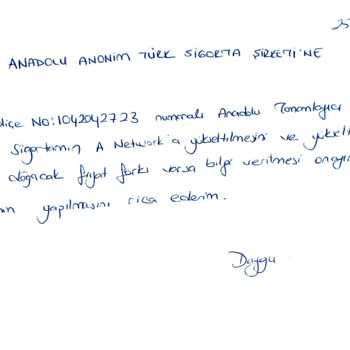 25
ANADOLU ANONİM TÜRK SİGORTA ŞİRKETİ'NE
liçe NO:1042042723 numaralı Anadolu Tamamlayıcı
Sigortamın A Network'a yükseltilmesini ve yükselt
doğacak fiyat farkı varsa bilgi verilmesi onayı
yapılmasını rica ederim.
Duygu